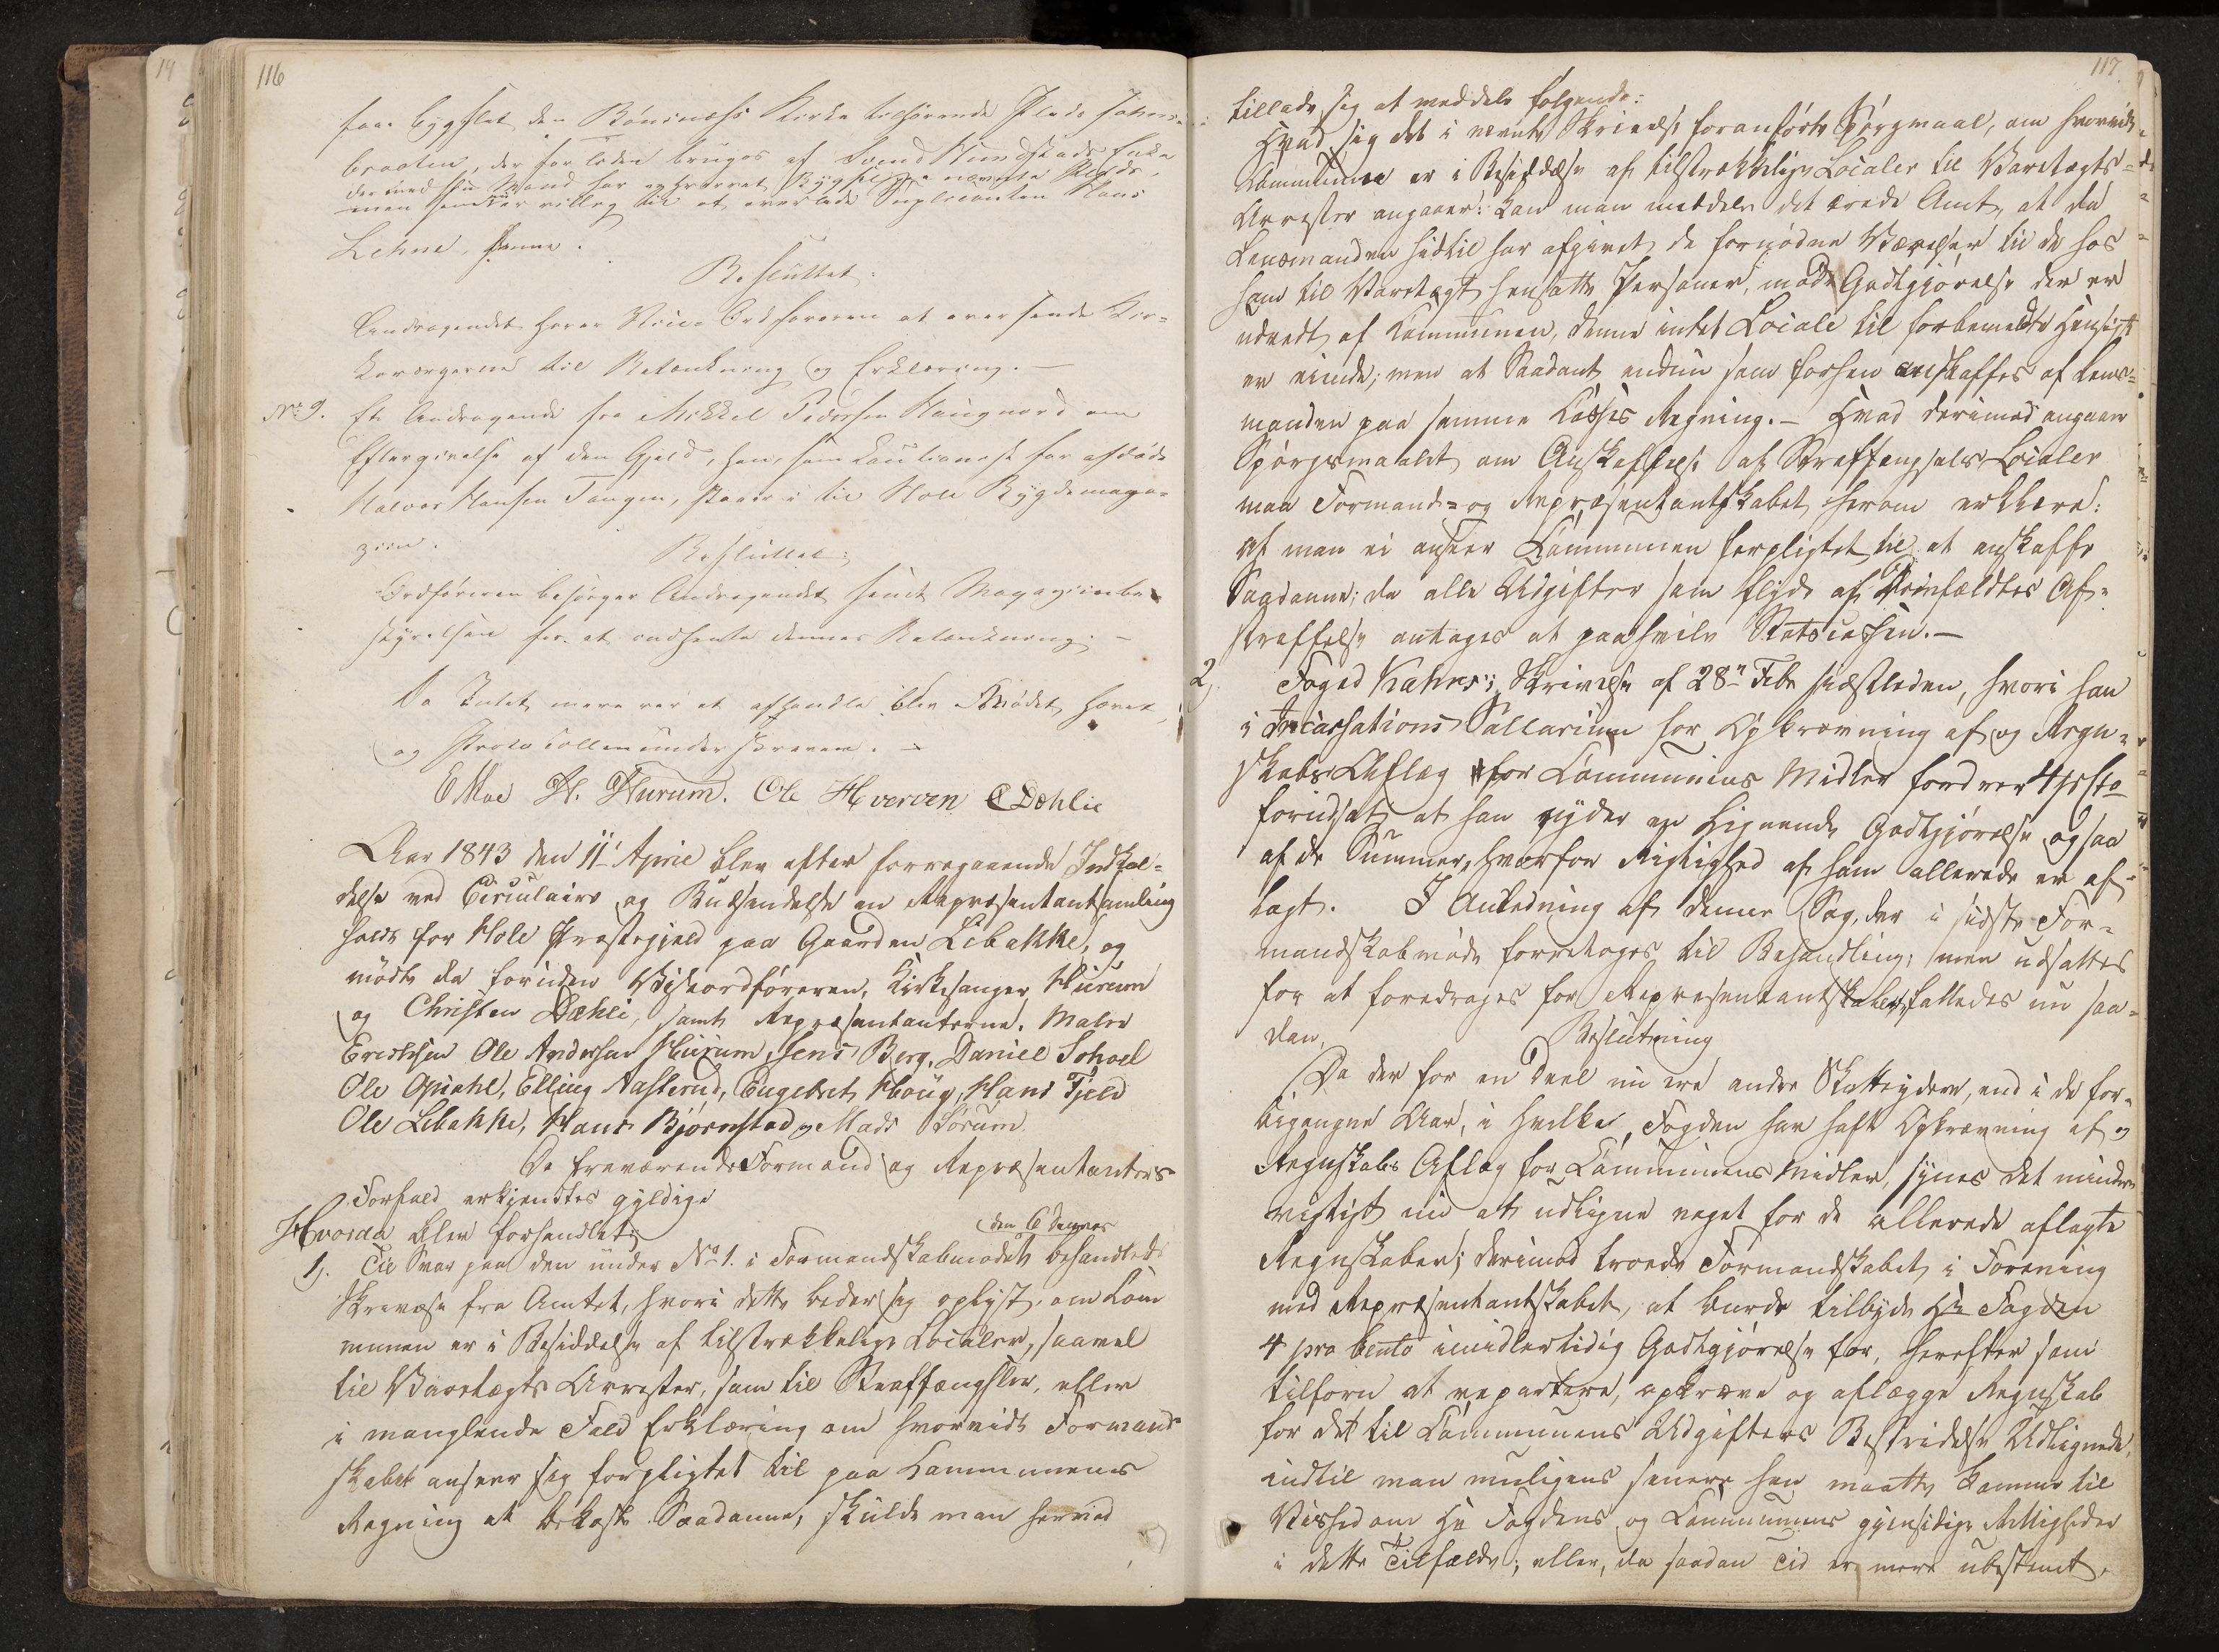 116
faae bygslet den Bønsnæss Kirke tilhørende Plads Johns-
braaten, der for Tiden bruges af Svend Hundstads Enke
der med sin Mand har opbrugt Bygsel paa nævnte Plads,
men som er villig til at overlade Suplicanten Hans
Lehne, samme.
Besluttet:
Andragendet haver Vice Ordføreren at oversende Kir-
keværgerne til Betænkning og Erklæring. —
No 9. Et Andragende fra Mikkel Pedersen Haugnord om
Eftergivelse af den Gjeld, han, som Cautionist for afdøde
Halvor Hansen Tangen, staaer i til Hole Bygdemaga-
zin.
Besluttet:
Ordføreren besørger Andragendet sendt Magazinbe-
styrelsen for at indhente dennes Betænkning. —
Da Intet mere var at afhandle blev Mødet hævet,
og Protocollen underskreven. —
E Moe H. Hurum. Ole Hverven C Dæhlie
Aar 1843 den 11' April blev efter forregaaende Indkal-
delse ved Circulaire og Budsendelse en Repræsentantsamling
holdt for Hole Præstegjeld paa Gaarden Libakke, og
mødte da foruden Viseordføreren, Kirkesanger Hurum
og Christen Dæhli, samt Repræsentanterne. Maler
Erichsen Ole Andersen Hurum, Jens Berg, Daniel Schoel
Ole Opsahl, Elling Aasterud, Engebret Houg, Hans Fjeld
Ole Libakke, Hans Bjørnstad og Mads Sørum.
De fraværende Formænd og Repræsentanters
Forfald erkjendtes gyldige
Hvorda blev forhandlet
den 6 dennes
1). Til Svar paa den under No 1. i Formandskabmødet behandlede
Skrivelse fra Amtet, hvori dette beder sig oplyst, om Com
munen er i Besiddelse af tilstrækkelige Localer, saavel
til Varetægts Arrester, som til Straffængsler, eller
i manglende Fald Erklæring om hvorvidt Formand-
skabet anseer sig forpligtet til paa Communens
Regning at bekoste Saadanne, skulde man herved
117.
tillade sig at meddele følgende:
Hvad sig det i nævnte Skrivelse foranførte Spørgmaal, om hvorvidt
Communen er i Besiddelse af tilstrækkelige Localer til Varetægts-
Arrester angaaer: kan man meddele det ærede Amt, at da
Lensmanden hidtil har afgivet de fornødne Værelser til de hos
ham til Varetægt hensatte Personer, mod Godtgjørelse der er
udredt af Communen, denne intet Locale til forbemeldte Hensigt
er eiende; men at Saadant endnu som forhen anskaffes af Lens-
manden paa samme Casses Regning. — Hvad derimod angaaer
Spørgsmaalet om Anskaffelse af Straffængsels Localer
maa Formand- og Repræsentantskabet herom erklære:
at man ei anseer Communen forpligtet til at anskaffe
Saadanne; da alle Udgifter som flyde af Domfældtes Af-
straffelse antages at paahvile Statscassen. —
2). Foged Kahrs's Skrivelse af 28n Febr sidstleden, hvori han
i Incassations Sallarium for Opkrævning af og Regn-
skabs Aflæg for Communens Midler fordrer 4 prCto
forudsat at han nyder en lignende Godtgjørelse ogsaa
af de Summer, hvorfor Rigtighed af ham allerede er af-
lagt. I Anledning af denne Sag, der i sidste For-
mandskabmøde forretoges til Behandling; men udsattes
for at foredrages for Repræsentantskabet, falledes nu saa-
dan, Beslutning
Da der for en Deel nu ere andre Skatteydere, end i de for-
bigangne Aar, i hvilke Fogden har haft Opkrævning af og
Regnskabs Aflæg for Communens Midler, synes det mindre
rigtigt nu at udligne noget for de allerede aflagte
Regnskaber; derimod troede Formandskabet i Forening
med Repræsentantskabet, at burde tilbyde Hr Fogden
4 pro Cento imidlertidig Godtgjørelse for, herefter som
tilforn at repartere, opkræve og aflægge Regnskab
for det til Communens Udgifters Bestridelse Udlignede,
indtil man muligens senere hen maatte komme til
Vished om Hr Fogdens og Communens gjensidige Rettigheder
i dette Tilfælde; eller, da saadan Tid er mere ubestemt,